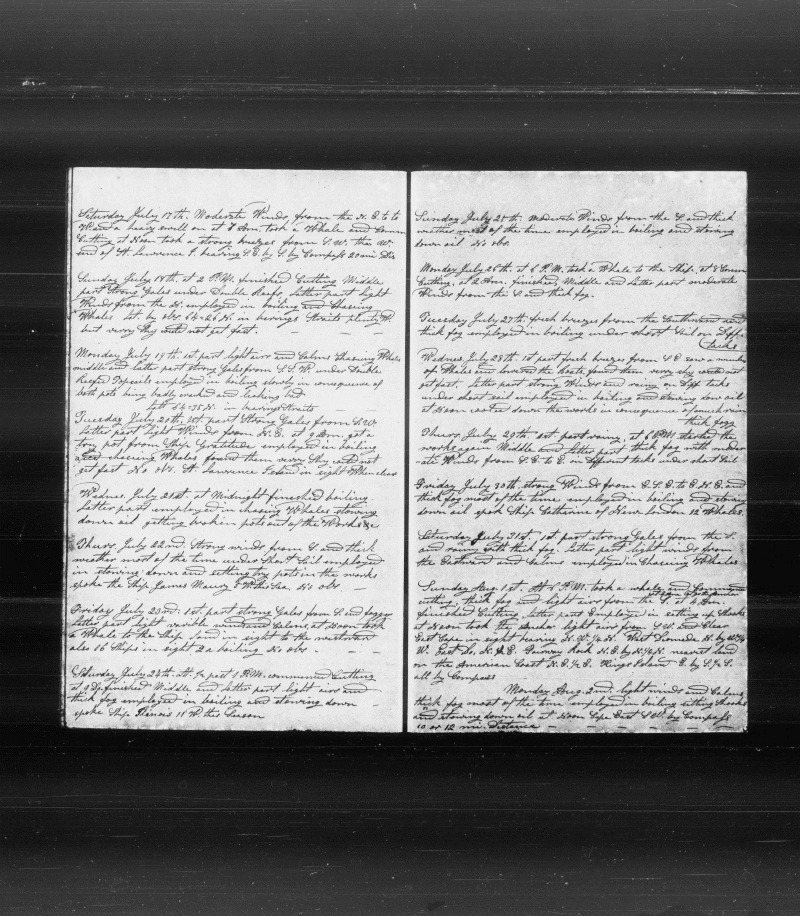 Saturday July 17th. Moderate Winds, from the N. E. to to
W. and a heavy swell on at 8 Am. took a Whale and Comm
Cutting at Noon took a strong breezes from S. W. the W.
end of St Lawrence I. bearing S. E. by S. by Compass 20 mi Dis
Sunday July 18th. at 2 P.M. finished Cutting Middle
part Strong Gales under Double Reefs latter part light
Winds from the N. employed in boiling and Chasing
Whales Lat. by obs 64-26 N. in berrings Straits plenty W.
but verry Shy could not get fast.
Monday July 19th. 1st. part light airs and Calms Chasing Whales
middle and latter part strong Gales from S.S.W. under Double
Reefed Topsails employed in boiling slowly in consequence of
both pots being badly cracked and leaking bad
Latt 64-35 N. in bearings Straits
Tuesday July 20th, 1st. part Strong Gales from S.W.
Latter part light Winds from N. E. at 9 Am. got a
try pot from Ship Gratitude employed in boiling
also chasing Whales found them verry Shy could not
get fast No obs. St Lawrence Island in sight When clear
Wednes. July 21st. at Midnight finished boiling
Latter part employed in chasing Whales stowing
down oil getting broken pots out of the Works &c
Thurs. July 22nd. Strong winds from S. and thick
weather most of the time under Short Sail employed
in stowing down and setting try pots in the works
spoke the Ship James Maury 6 Whs this Sea. No obs -
Friday July 23rd. 1st. part strong Gales from S. and foggy
Latter part light varible winds and Calms, at Noon took
a Whale to the Ship Land in sight to the westward
also 16 Ships in sight 2 a boiling No obs -
Saturday July 24th. At 1 P.M. commenced Cutting
at 9 Do. finished Middle and latter part light airs and
thick fog employed in boiling and stowing down
spoke Ship Francis 11 W. this Season
Sunday July 25th. moderate Winds from the S. and thick
weather most of the time employed in boiling and stowing
down oil No obs.
Monday July 26th. at 6 P.M. took a Whale to the Ship. at 8 Comm
Cutting, at 2 Am. finished, Middle and latter part moderate
Winds from the S. and thick fog.
Tuesday July 27th. fresh breezes from the Southward and
thick fog employed in boiling under short Sail on Diff.
tacks
Wednes. July 28th. 1st part fresh breezes from S E saw a number
of Whales and lowered the boats, found them very shy could not
get fast. Latter part strong Winds and rainy on Diff tacks
under short sail employed in boiling and stowing down oil
at Noon cooled down the works in consequence of much rain
thick fogg
Thurs. July 29th. 1st. part rainy, at 6 P.M. started the
works again Middle and latter part thick fog with moder-
-ate Winds from S.E. to E. on different tacks under short Sail
Friday July 30th. strong Winds from E.S.E. to E.N.E. and
thick fog most of the time employed in boiling and stowing
down oil spoke Ship Catherine of New London 12 Whales.
Saturday July 31st, 1st part strong Gales from the S.
and rainy with thick fog. latter part light winds from
the Eastward and Calms employed in Chasing Whales
Sunday Aug. 1st. At 1 P.M. took a whale and Commenced
cutting thick fog and light airs from the S. at 4 Am.
finished Cutting, latter part Employed in setting up Shooks
at Noon took the Anchor light airs from S W. and Clear
East Cape in sight bearing N. W. 1/4 N. West Diomede N. by W. 1/4
W. East Do. N. Fairway Rock N. E. by N. 1/4 N. nearest land
on the American Coast N. E. 1/4 E. Kings Island E. by S. 1/4 S.
all by Compass
Monday Aug. 2nd. light winds and Calms
thick fog most of the time employed in boiling setting Shooks
and stowing down oil at Noon Cape East S W. by Compass
10 or 12 mi. Distance